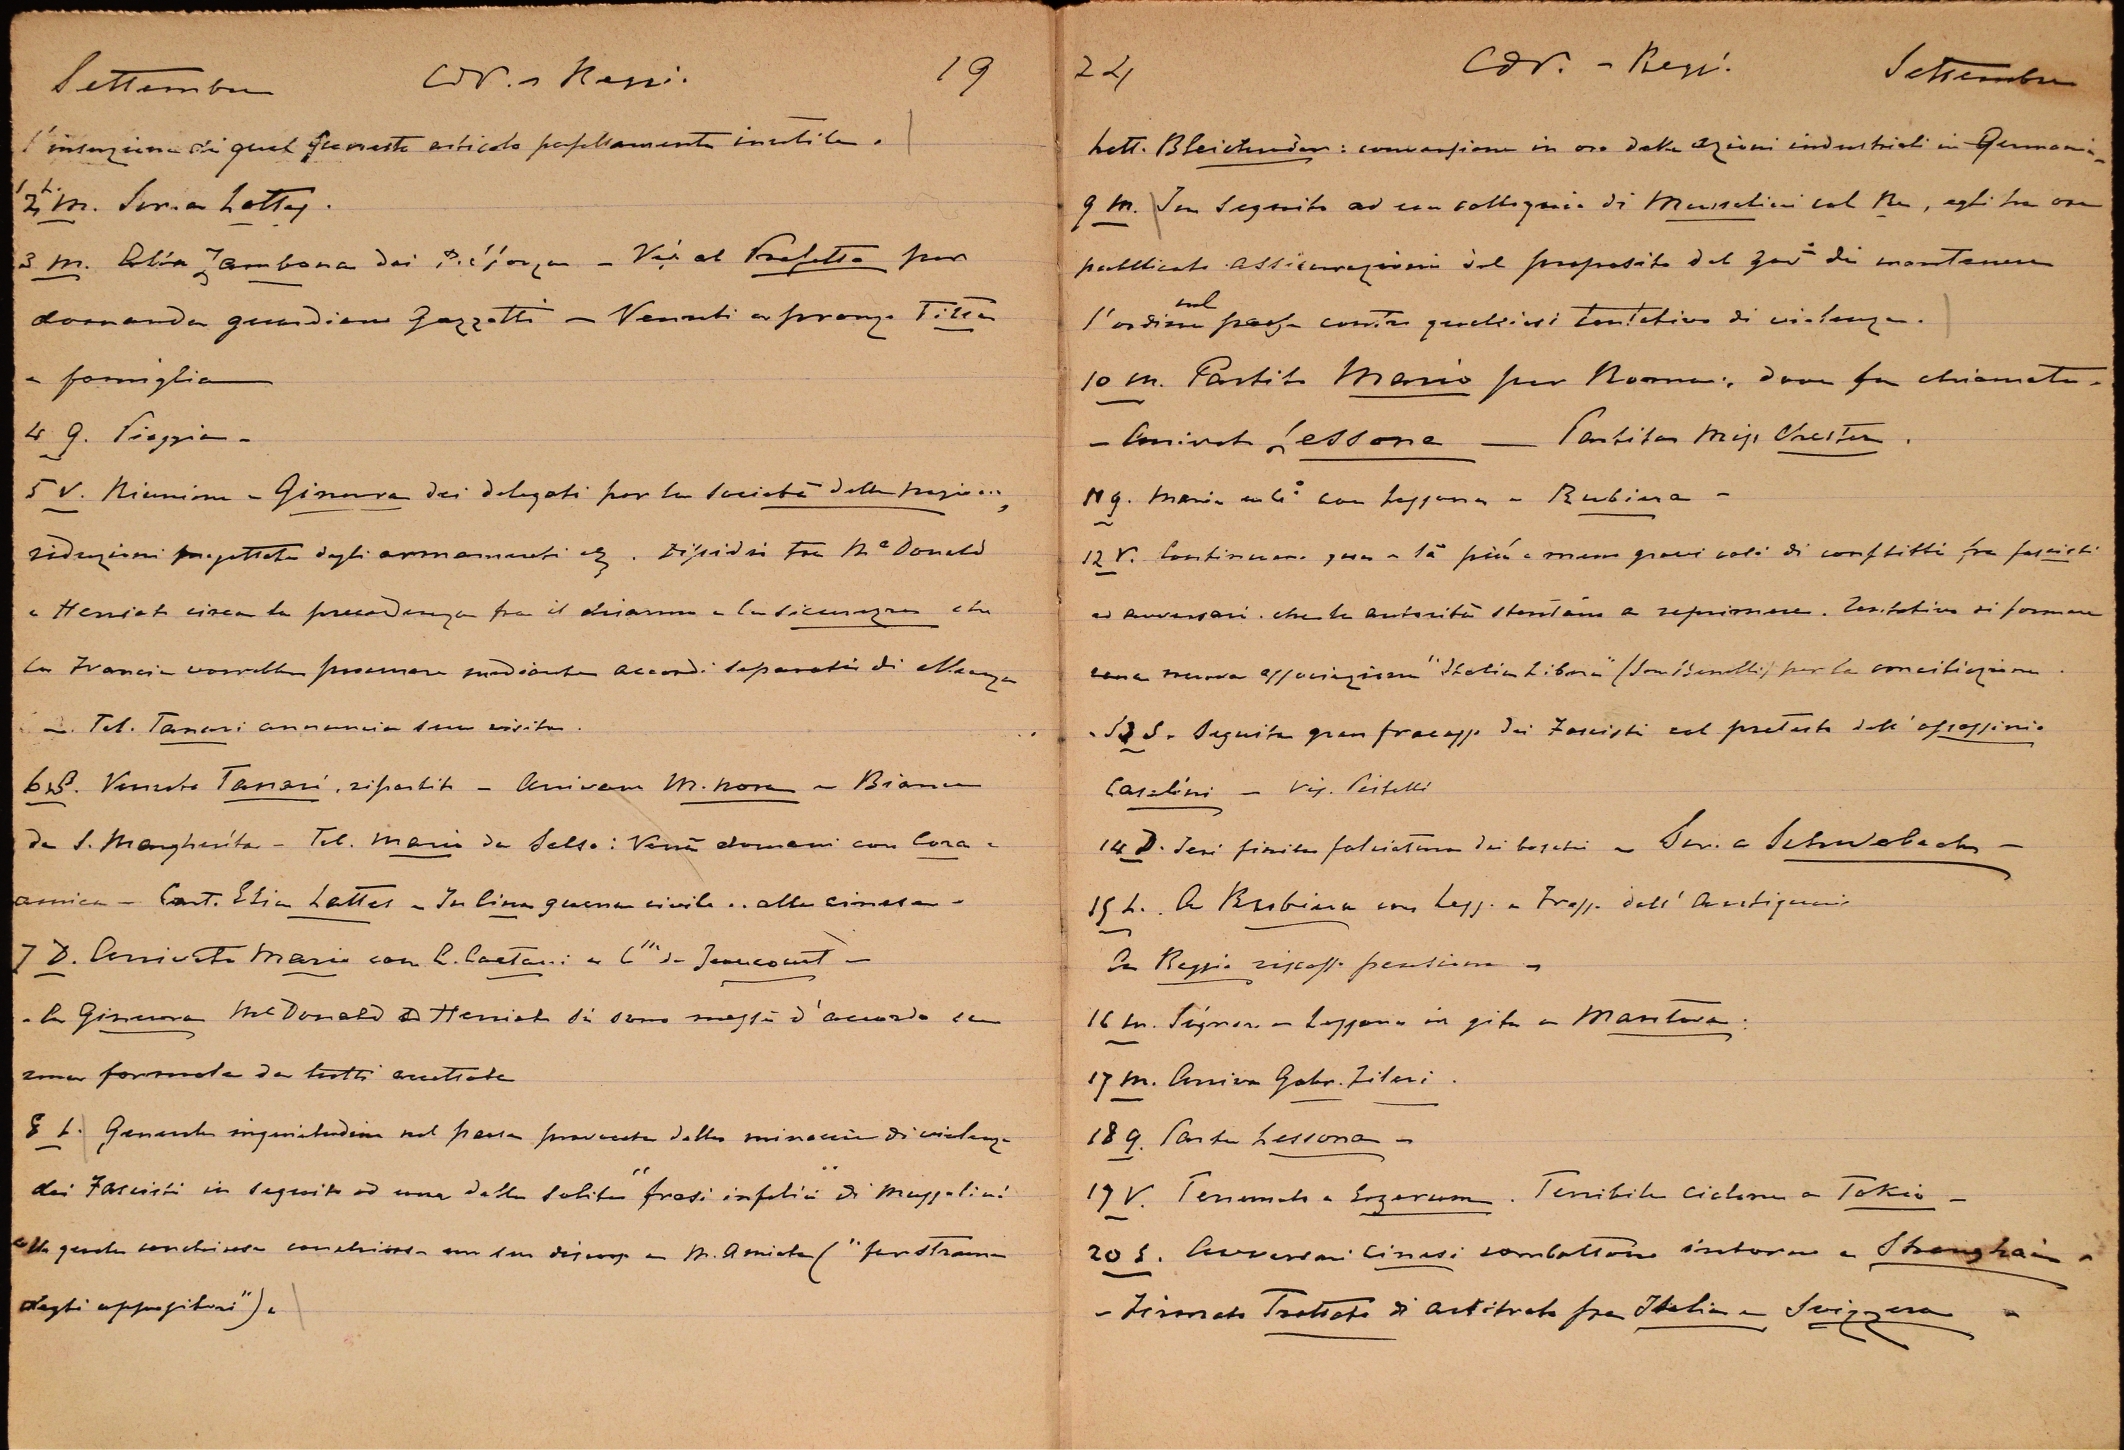 Settembre CdV. - Reggi. 19
l'inserzione di quel funesto articolo perfettamente inutile.
2 m. Scr. a Lattes.
3 m. Alla Zambona dai - Vis. al Prefetto per
domanda guardiano Gazzotti - Venuti a pranzo Titta
e famiglia
4 g. Pioggia -
5 V. Riunione a Ginevra dei delegati per la società delle nazioni,
riduzioni progettate degli armamenti ecc. Dissidi tra McDonald
e Herriot circa la precedenza fra il disarmo e la sicurezza che
la Francia vorrebbe procurare mediante accordi separati di alleanza
- Tel. Tanari annuncia sua visita.
6 S. Venuto Tanari, ripartito - Arrivano M. nora e Bianca
da S. Margherita - Tel. Mario da Salso: Verrà domani con Cora e
amica - Cart. Elia Lattes - In Cina guerra civile .. alla cinese -
7 D. Arrivato Mario con L. Caetani e C.ssa de Jaucourt -
- A Ginevra McDonald ed Herriot si sono messi d'accordo su
una formula da tutti accettata
8 L. Generale inquietudine nel paese provocata dalle minaccie di violenze
dei Fascisti in seguito ad una delle solite "frasi infelici" di Mussolini
colla quale conchiuse un suo discorso a M. Amiata ("far strame
degli oppositori").
24 CdV. - Reggi. Settembre
Lett. Bleichröder: conversione in oro delle azioni industriali in Germania -
9 m. In seguito ad un colloquio di Mussolini col Re, egli ha ora
pubblicato assicurazioni del proposito del gov.o di mantenere
l'ordine nel paese contro qualsiasi tentativo di violenza.
10 m. Partito Mario per Roma, dove fu chiamato -
- Arrivato Lessona - Partita Miss Chester.
11 g. Maria col con Lessona a Rubiera -
12 V. Continuano qua e là più o meno gravi casi di conflitti fra fascisti
ed avversari che le autorità stentano a reprimere. Tentativo di formare
una nuova associazione "Italia Libera" (Sem Benelli) per la conciliazione.
13 S. Seguita gran fracasso dei Fascisti col pretesto dell'assassinio
Casalini - Vis.
14 D. Ieri finita falciatura dei boschi - Scr. a Schwabach -
15 L. A Rubiera con Less. e Frass. dall'Antiquario
A Reggio riscosso pensione -
16 m. Signore e Lessona in gita a Mantova.
17 m. Arriva Gabr. Zileri.
18 g. Parte Lessona -
19 V. Terremoto a Erzerum. Terribile ciclone a Tokio -
20 S. Avversari Cinesi combattono intorno a Shanghain -
- Firmato Trattato di arbitrato fra Italia e Svizzera -